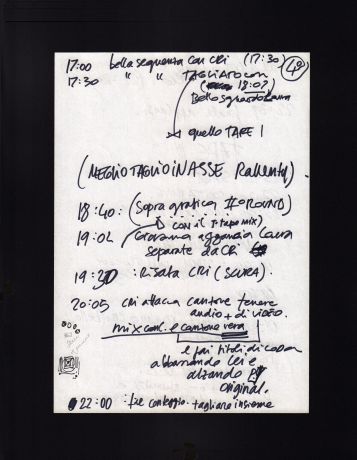 17:00 bella sequenza con CRI (17:30)
17:30 " " TAGLIATO con
18:02
Bello sguardo Laura
quello TAPE 1
(MEGLIO TAGLIO IN ASSE Rallenty)
18:40: (Sopra grafica
con il
19:02 Laura
separate da CRI
19:20: Risata CRI (SCURA).
20:05 CRI attacca canzone tenere
audio + di VIDEO.
mix con e canzone vera
e poi titoli di CODA
abbassando CRI e
alzando
original.
22:00 : fine conteggio. tagliare insieme